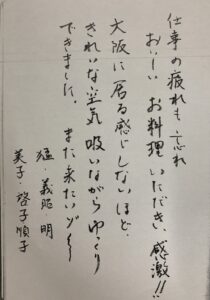 仕事の疲れも忘れ
おいしいお料理いただき、感激!!
大阪に居る感じしないほど、
きれいな空気吸いながらゆっくり
できました。
また来たいゾ〜
猛・義昭 明
美子・啓子順子